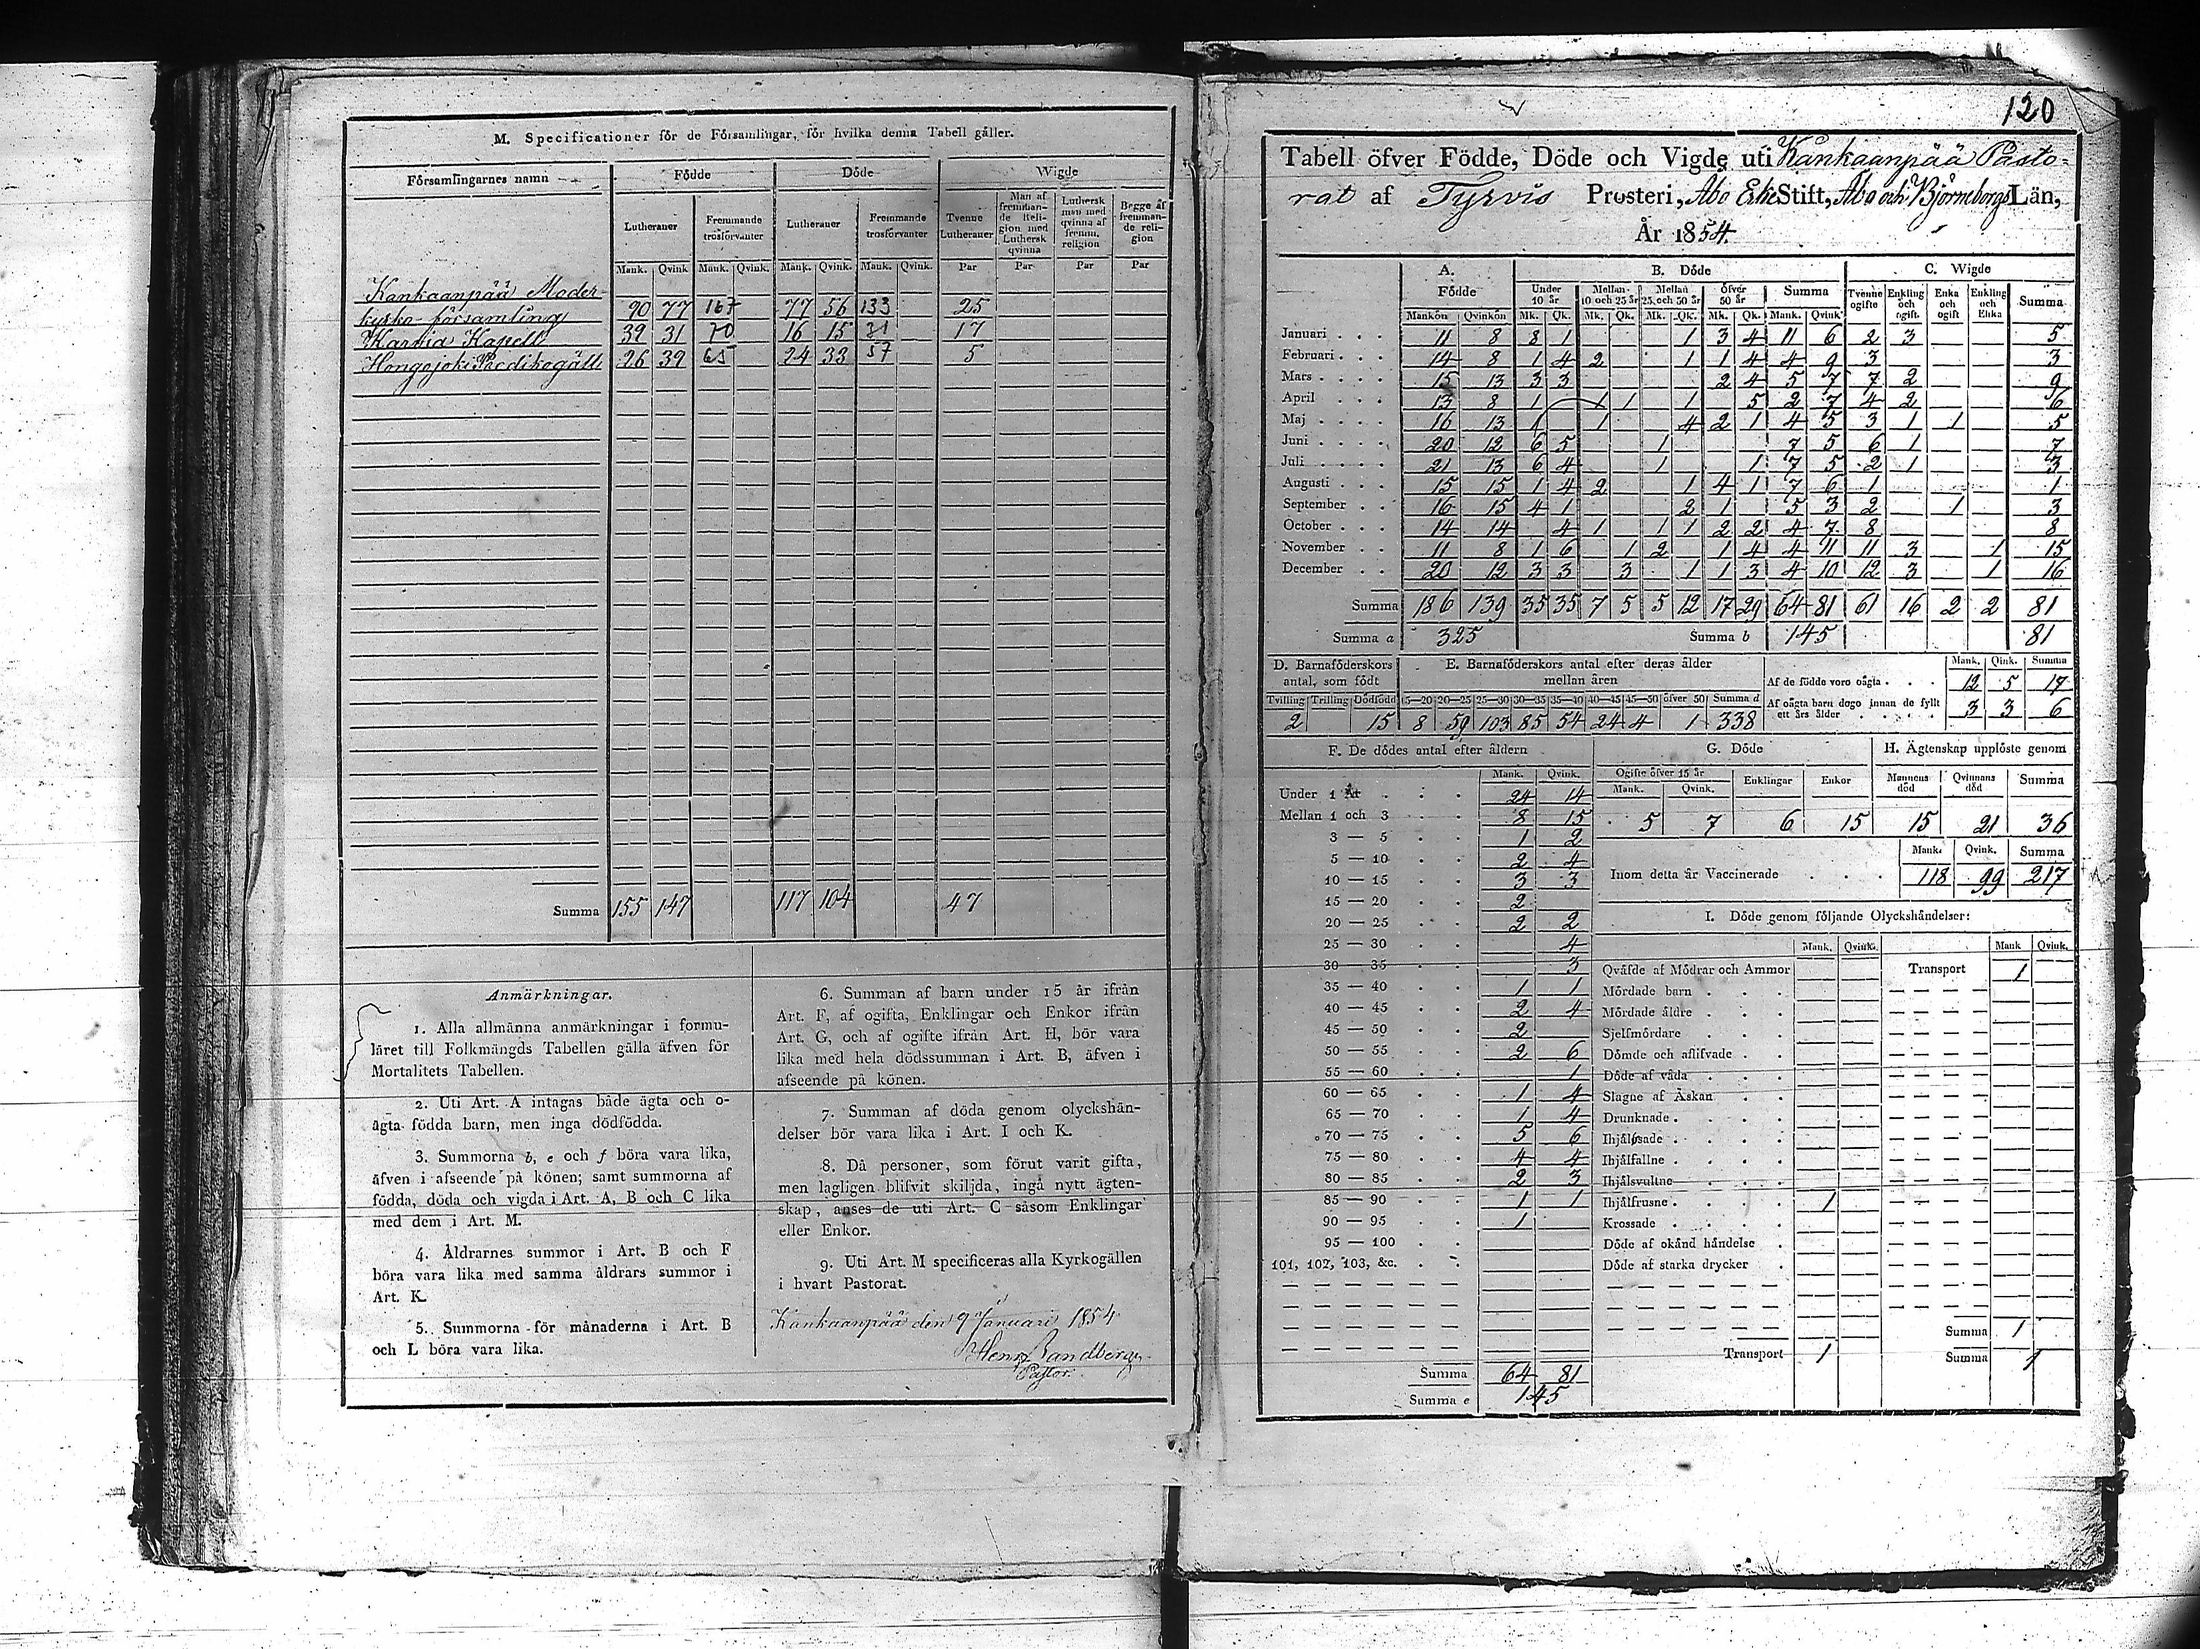 M. Specificationer för de Församlingar, för hvilka denna Tabell gäller.
Församlingarnes namn Födde Döde Wigde
Lutheraner Fremmande trosförvanter Lutheraner Fremmande trosförvanter Tvenne Lutheraner Man af fremmande Religion med Luthersk qvinna Luthersk man med qvinna af fremm. religion Begge af fremmande religion
Mank. Qvink Mank. Qvink. Mank. Qvink. Mank. Qvink. Par Par Par Par
Kankaanpää Moder-
kyrko-församling 90 77 167 77 56 133 25
Karvia Kapell 39 31 70 16 15 31 17
Hongojoki Predikogäll 26 39 65 24 33 57 5
Summa 155 147 117 104 47
Anmärkningar.
1. Alla allmänna anmärkningar i formu-
läret till Folkmängds Tabellen gälla äfven för
Mortalitets Tabellen.
2. Uti Art. A intagas både ägta och o-
ägta födda barn, men inga dödfödda.
3. Summorna b, e och f böra vara lika,
äfven i afseende på könen; samt summorna af
födda, döda och vigda i Art. A, B och C lika
med dem i Art. M.
4. Åldrarnes summor i Art. B och F
böra vara lika med samma åldrars summor i
Art. K.
5. Summorna för månaderna i Art. B
och L böra vara lika.
6. Summan af barn under 15 år ifrån
Art. F, af ogifta, Enklingar och Enkor ifrån
Art. G, och af ogifte ifrån Art. H, bör vara
lika med hela dödssumman i Art. B, äfven i
afseende på könen.
7. Summan af döda genom olyckshän-
delser bör vara lika i Art. I och K.
8. Då personer, som förut varit gifta,
men lagligen blifvit skiljda, ingå nytt ägten-
skap, anses de uti Art. C såsom Enklingar
eller Enkor.
9. Uti Art. M specificeras alla Kyrkogällen
i hvart Pastorat.
Kankaanpää den 9 Januari 1854
Henr Sandberg
Pastor.
120
Tabell öfver Födde, Döde och Vigde uti Kankaanpää Pasto-
rat af Tyrvis Prosteri, Åbo ErkeStift, Åbo och Björneborgs Län,
År 1854.
A. Födde B. Döde C. Wigde
Under 10 år Mellan 10 och 25 år Mellan 25 och 50 år Öfver 50 år Summa Tvenne ogifte Enkling och ogift. Enka och ogift Enkling och Enka Summa
Mankön Qvinkön Mk. Qk. Mk. Qk. Mk. Qk. Mk. Qk. Mank. Qvink
Januari . . . 11 8 8 1 1 3 4 11 6 2 3 5
Februari . . . 14 8 1 4 2 1 1 4 4 9 3 3
Mars . . . . 15 13 3 3 2 4 5 7 7 2 9
April . . . 13 8 1 1 1 1 5 2 7 4 2 6
Maj . . . . 16 13 1 1 4 2 1 4 5 3 1 1 5
Juni . . . . 20 12 6 5 1 7 5 6 1 7
Juli . . . . . 21 13 6 4 1 1 7 5 2 1 3
Augusti . . . 15 15 1 4 2 1 4 1 7 6 1 1
September . . 16 15 4 1 2 1 5 3 2 1 3
October . . . 14 14 4 1 1 1 2 2 4 7 8 8
November . . 11 8 1 6 1 2 1 4 4 11 11 3 1 15
December . . 20 12 3 3 3 1 1 3 4 10 12 3 1 16
Summa 186 139 35 35 7 5 5 12 17 29 64 81 61 16 2 2 81
Summa a 325 Summa b 145 81
D. Barnaföderskors antal, som födt
Tvilling Trilling Dödfödd
2 15
E. Barnaföderskors antal efter deras ålder mellan åren
15—20 20—25 25—30 30—35 35—40 40—45 45—50 öfver 50 Summa d
8 59 103 85 54 24 4 1 338
Mank. Qink. Summa
Af de födde voro oägta . . . 12 5 17
Af oägta barn dogo innan de fyllt ett års ålder . . . . . 3 3 6
F. De dödes antal efter åldern
Mank. Qvink.
Under 1 År . . . 24 14
Mellan 1 och 3 . . 8 15
3 — 5 . . 1 2
5 — 10 . . 2 4
10 — 15 . . 3 3
15 — 20 . . 2
20 — 25 . . 2 2
25 — 30 . . 4
30 — 35 . . 3
35 — 40 . . 1 1
40 — 45 . . 2 4
45 — 50 . . 2
50 — 55 . . 2 6
55 — 60 . . 1
60 — 65 . . 1 4
65 — 70 . . 1 4
70 — 75 . . 5 6
75 — 80 . . 4 4
80 — 85 . . 2 3
85 — 90 . . 1 1
90 — 95 . . 1
95 — 100 . .
101, 102, 103, &c. . .
Summa 64 81
Summa e 145
G. Döde
Ogifte öfver 15 år Enklingar Enkor
Mank. Qvink.
5 7 6 15
H. Ägtenskap upplöste genom
Mannens död Qvinnans död Summa
15 21 36
Mank. Qvink. Summa
Inom detta år Vaccinerade . . . 118 99 217
I. Döde genom följande Olyckshändelser:
Mank. Qvink. Mank Qvink.
Qväfde af Mödrar och Ammor Transport 1
Mördade barn . . .
Mördade äldre . . .
Sjelfmördare . . .
Dömde och aflifvade . .
Döde af våda . . .
Slagne af Åskan . .
Drunknade . . . .
Ihjälösade . . . .
Ihjälfallne . . . .
Ihjälsvultne . . .
Ihjälfrusne . . . . 1
Krossade . . . .
Döde af okänd händelse .
Döde af starka drycker .
Summa 1
Transport 1 Summa 1